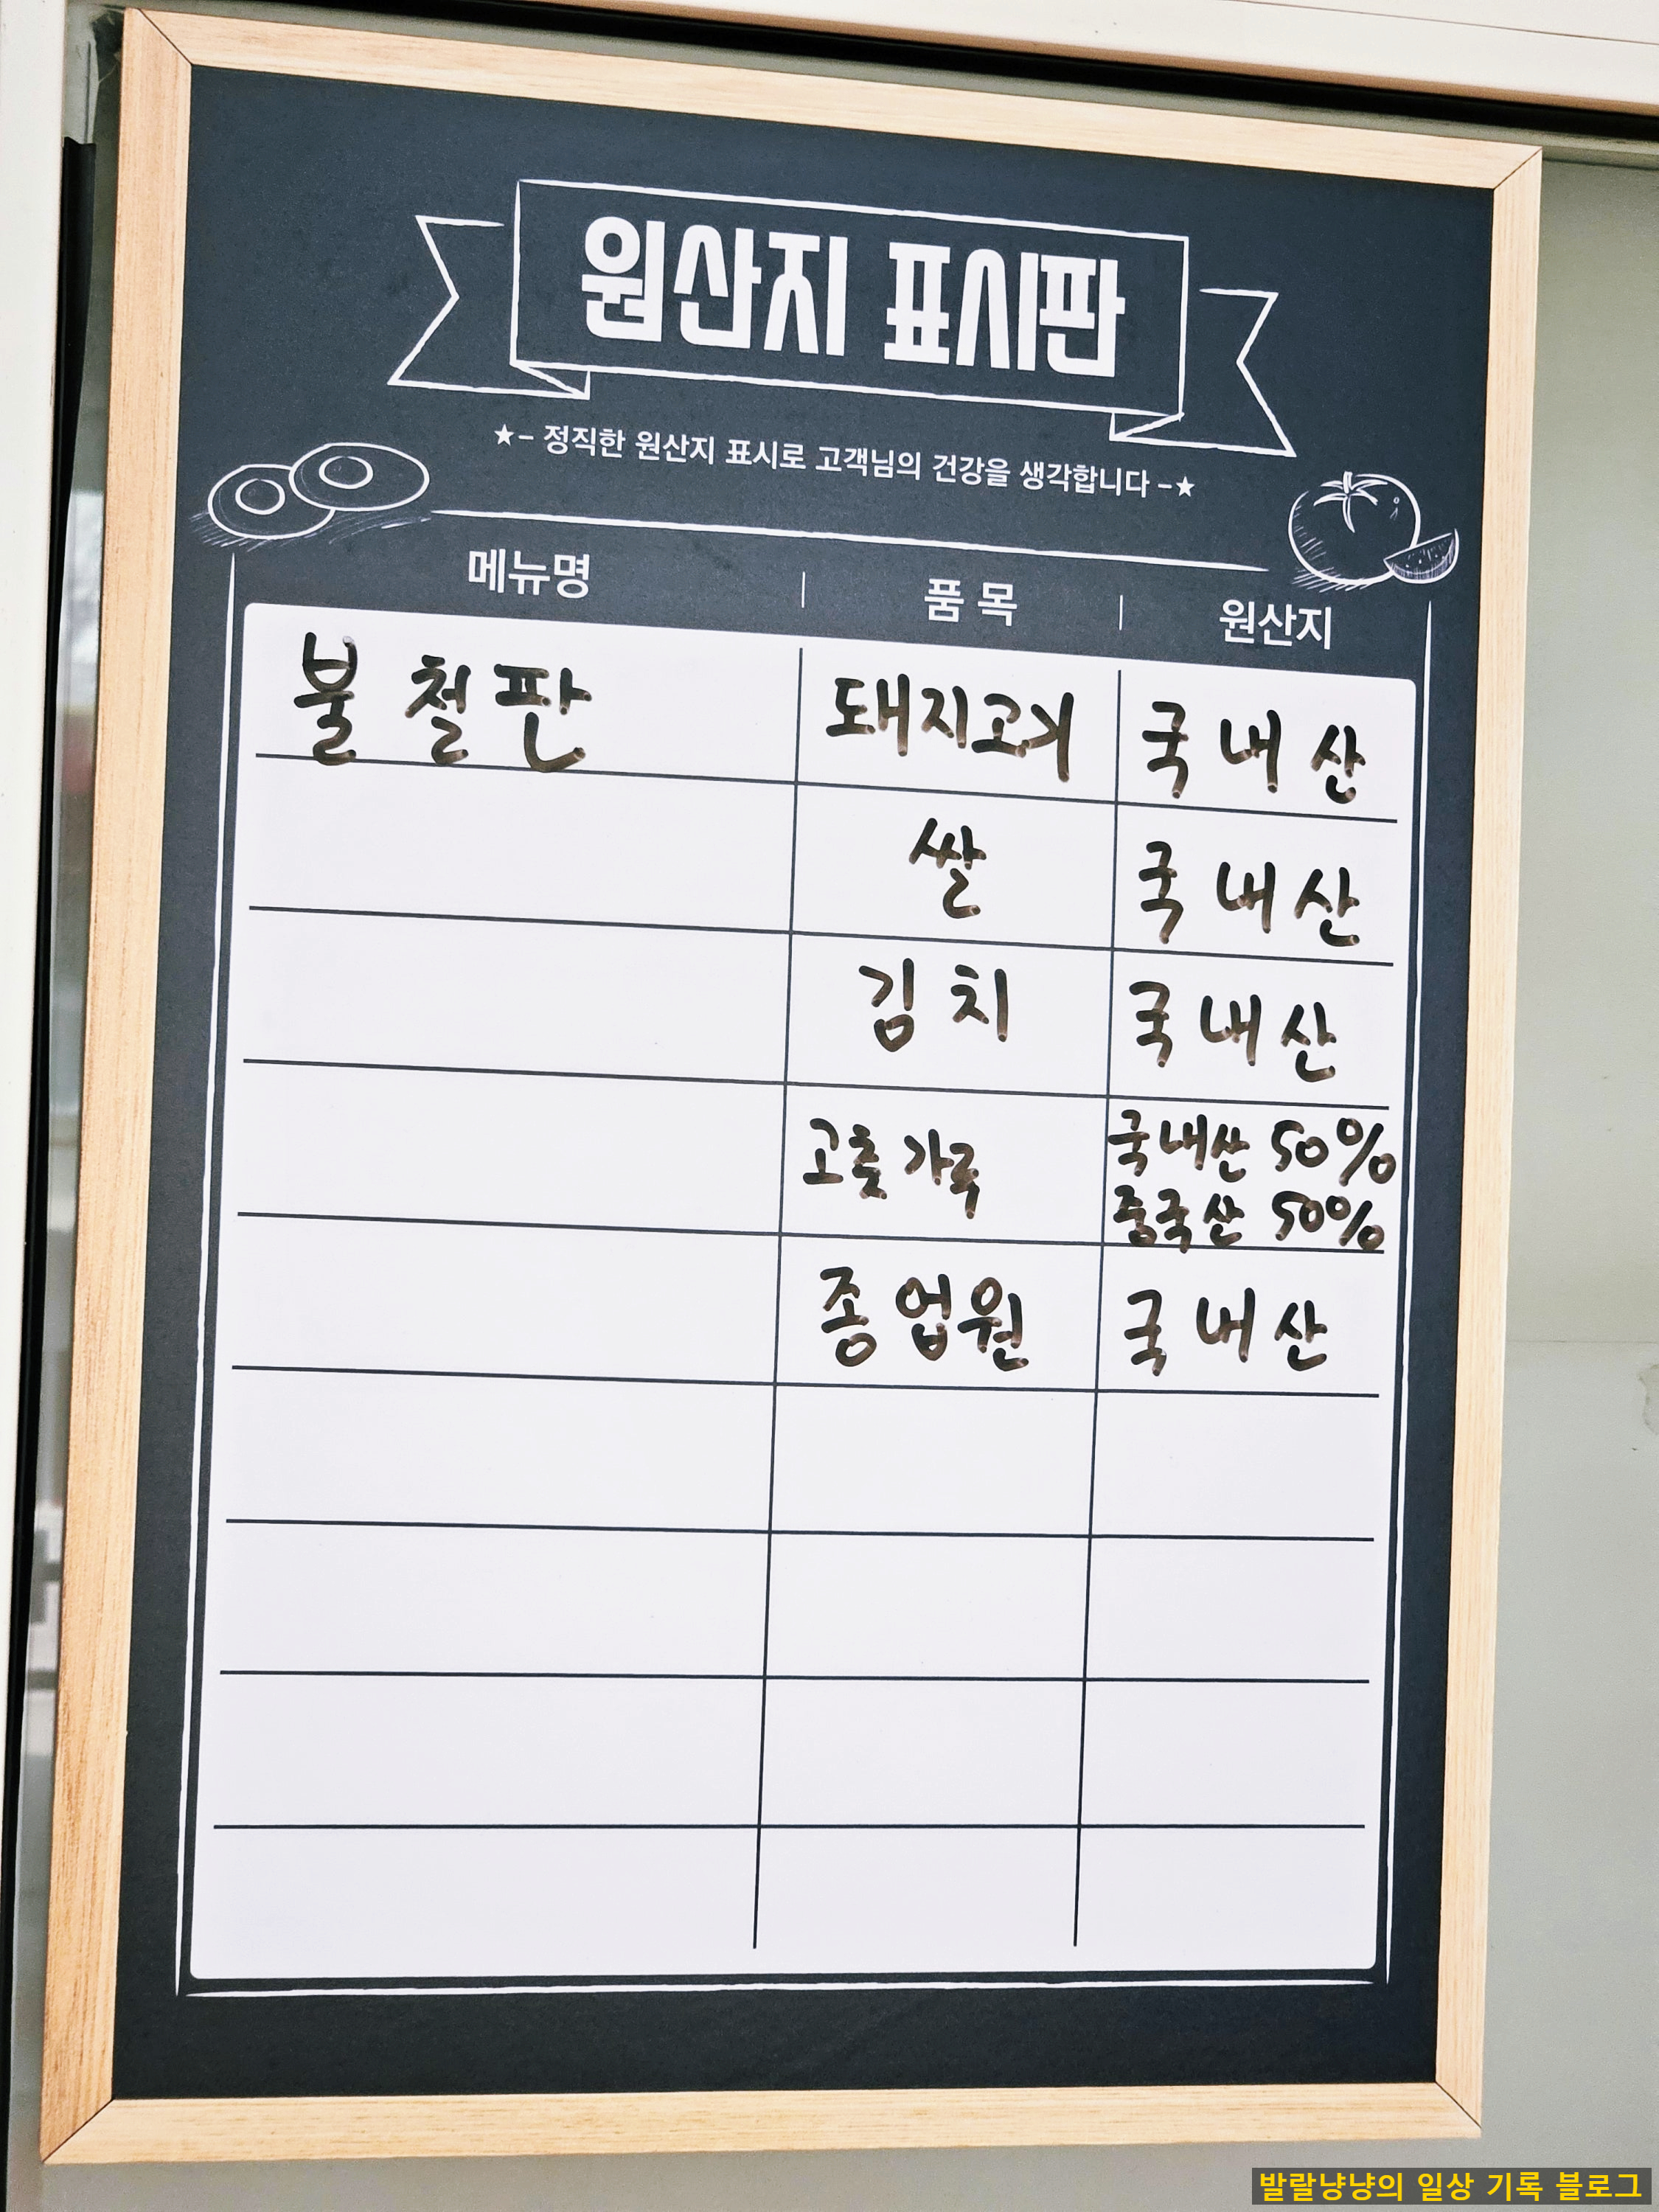 원산지 표시판
★- 정직한 원산지 표시로 고객님의 건강을 생각합니다 -★
메뉴명 | 품목 | 원산지
불철판 돼지고기 국내산
쌀 국내산
김치 국내산
고춧가루 국내산 50%
중국산 50%
종업원 국내산
발랄냥냥의 일상 기록 블로그